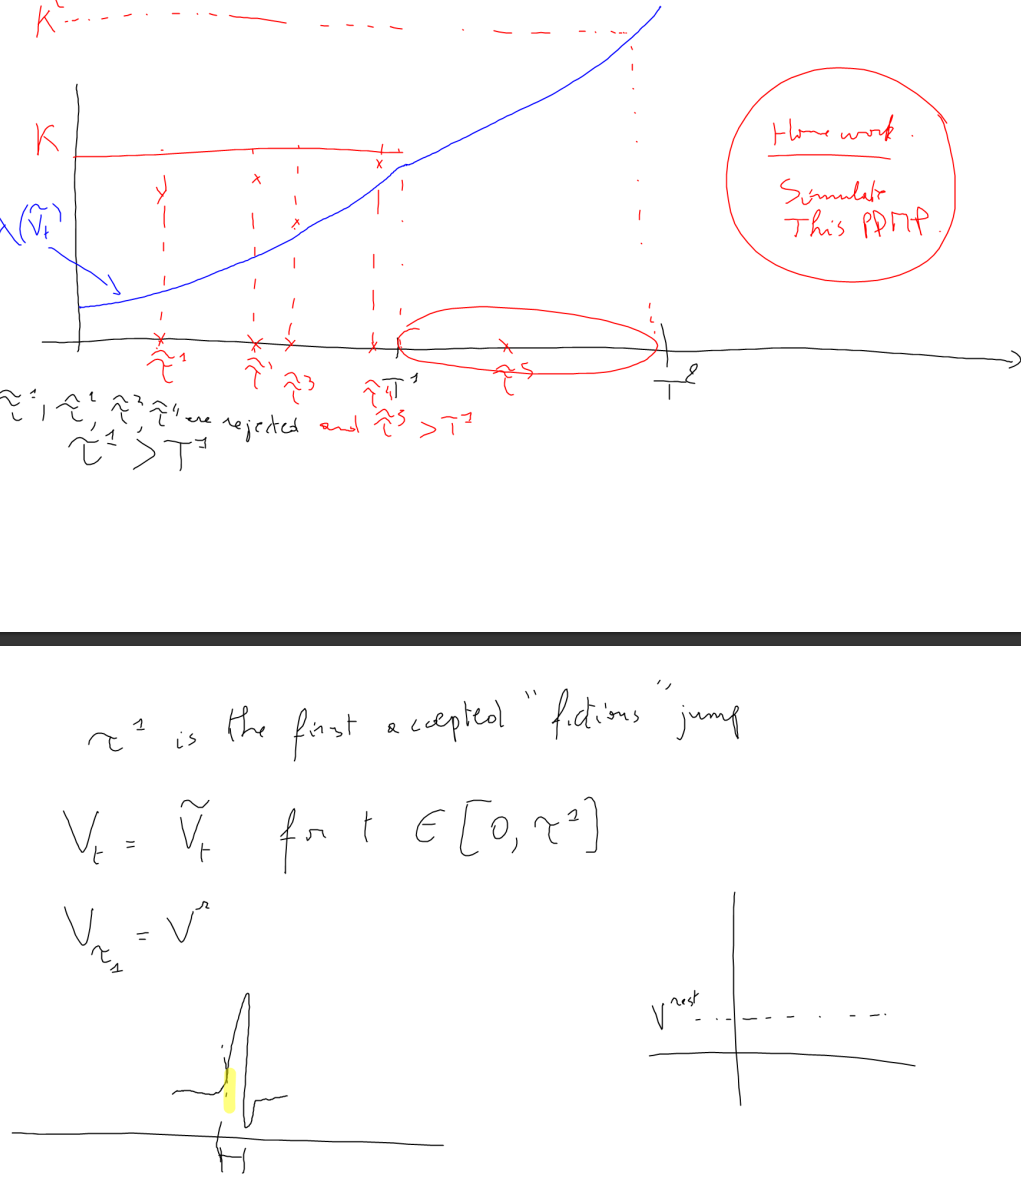 K²
K
Homework.
Simulate
This PDMP.
λ(Ṽ_t)
τ̃¹ τ̃² τ̃³ τ̃⁴ T¹ τ̃⁵ T²
τ̃¹, τ̃², τ̃³, τ̃⁴ are rejected and τ̃⁵ > T¹
τ¹ > T¹
τ¹ is the first accepted "fictious" jump
V_t = Ṽ_t for t ∈ [0, τ¹]
V_τ₁ = V^r
V^rest